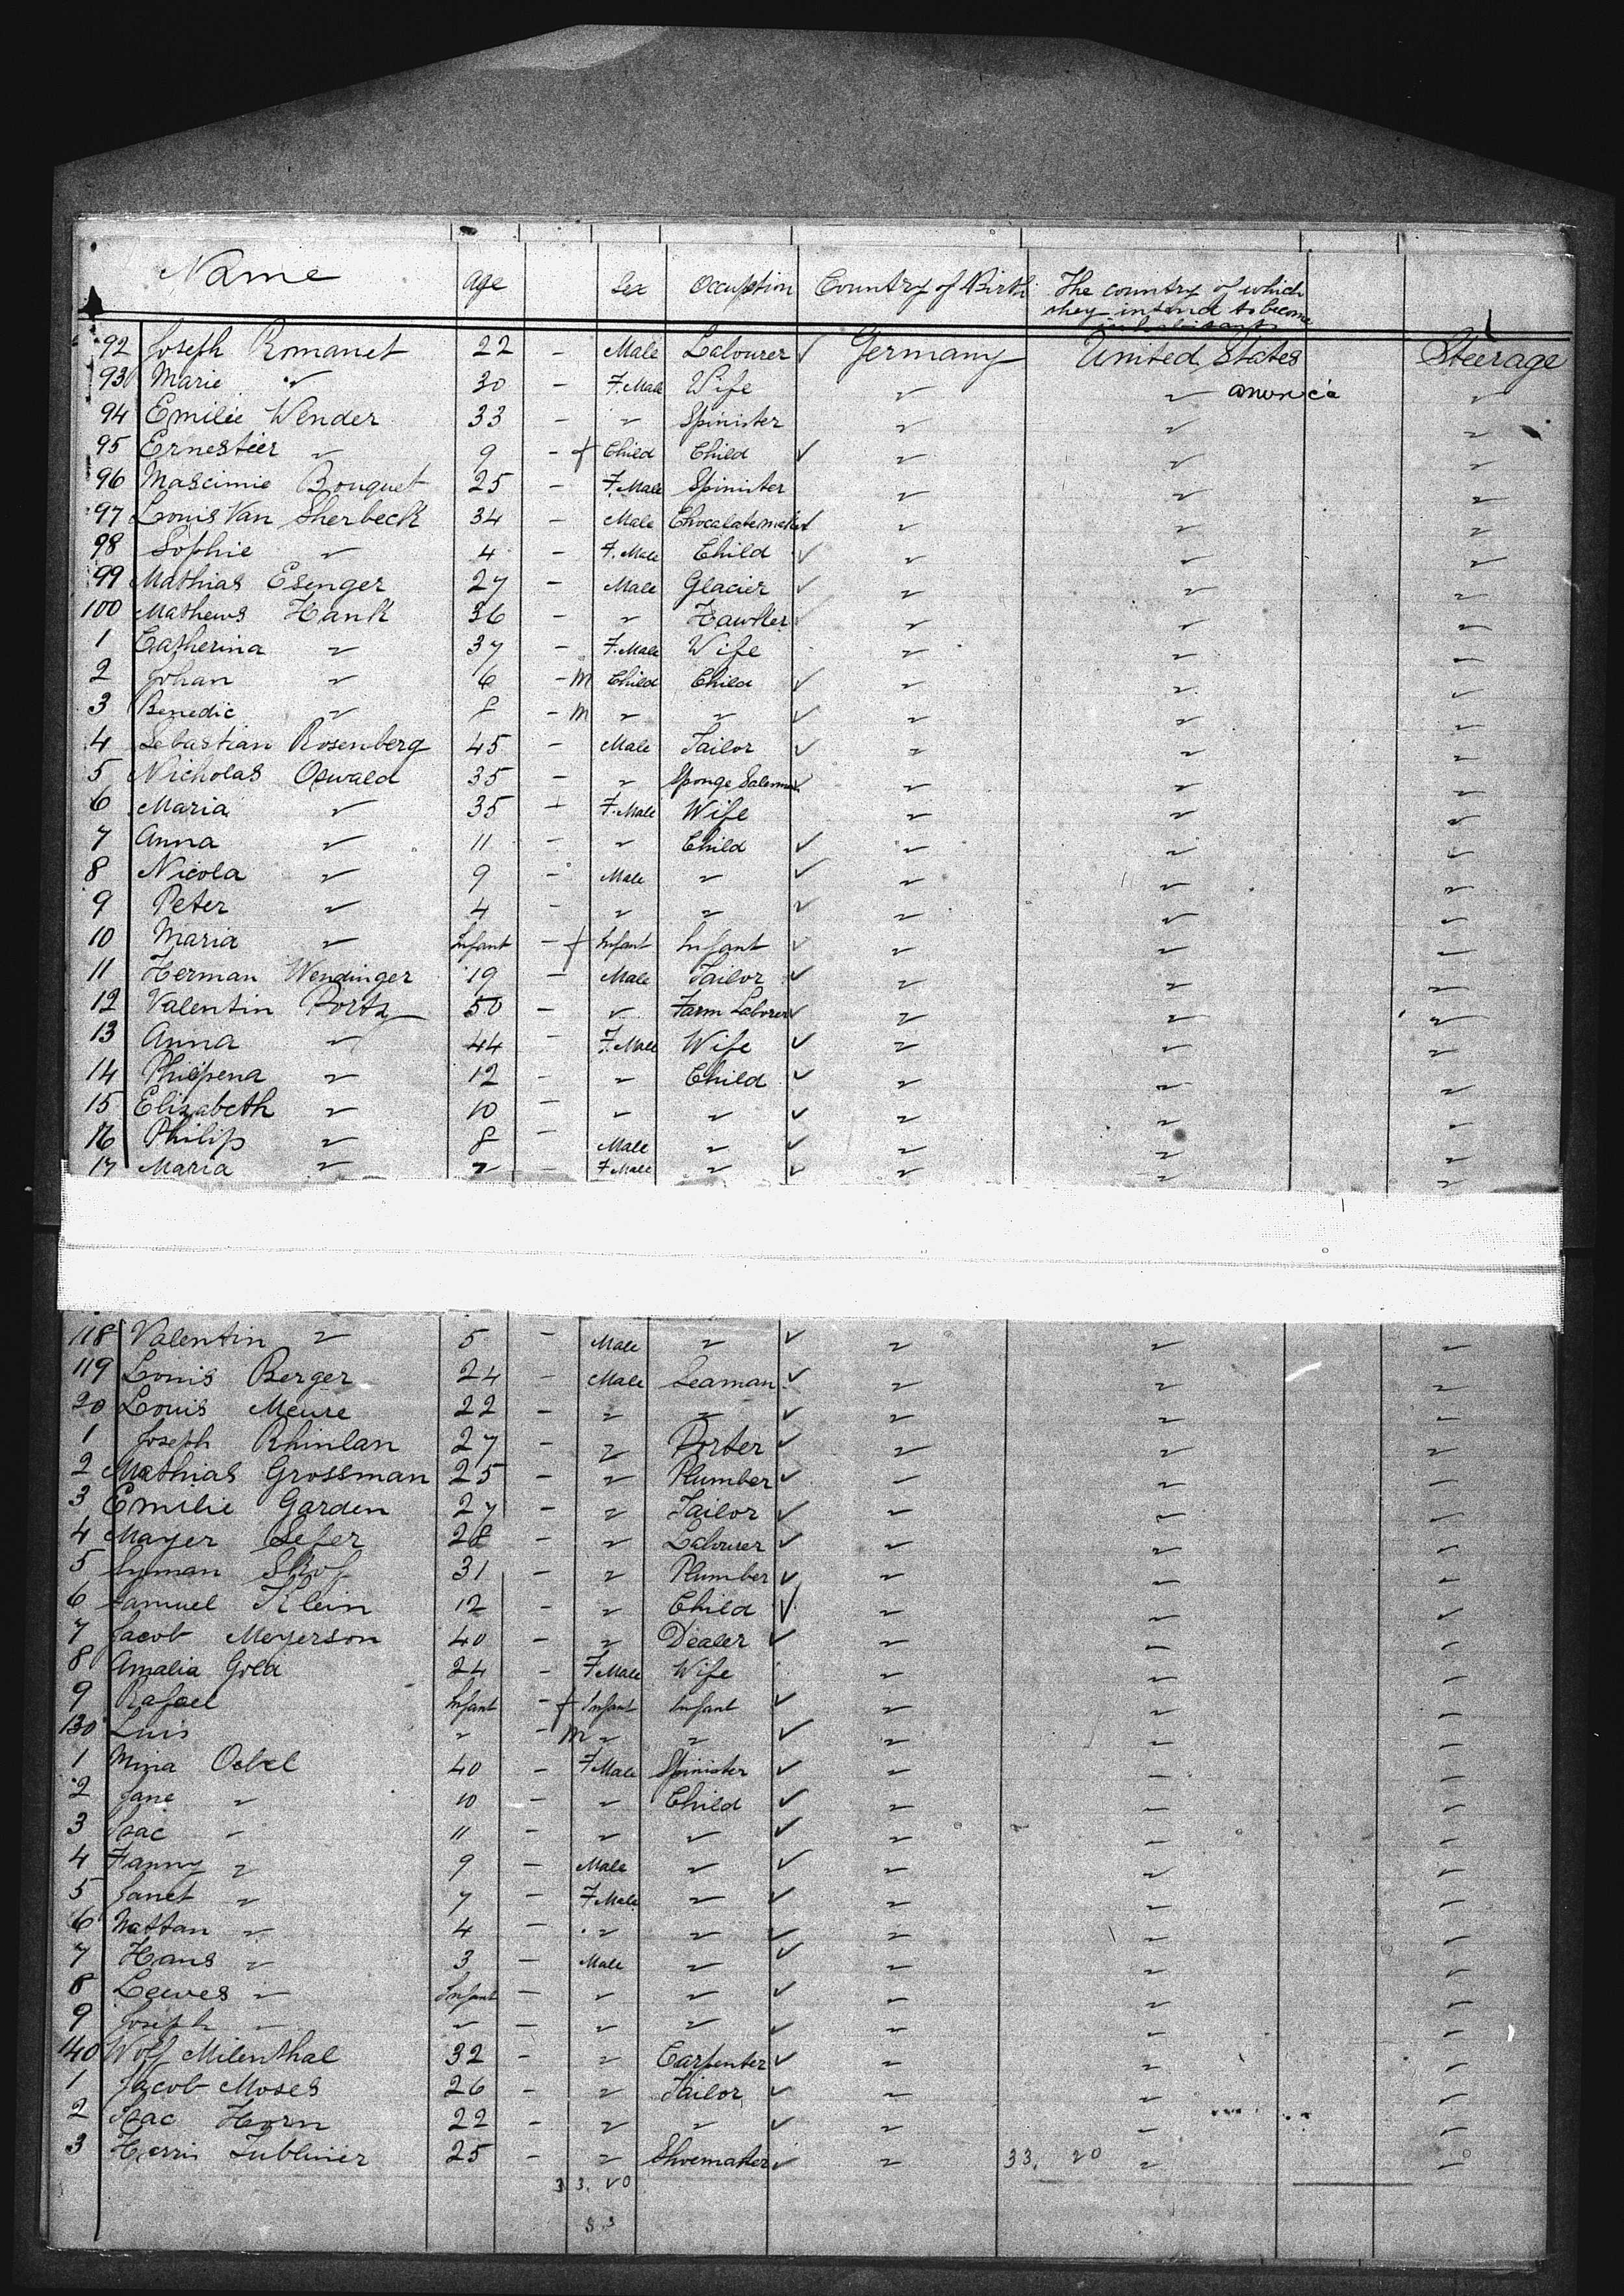 Name Age Sex Occuption Country of Birth The country of which
they intend to become
inhabitants
92 Joseph Romanet 22 - Male Labourer ✓ Germany United States Steerage
93 Marie " 30 - F.Male Wife " " "
94 Emilie Wender 33 - " Spinister " " "
95 Ernestier " 9 - f Child Child ✓ " " "
96 Mascimie Bouquet 25 - F.Male Spinister " " "
97 Louis Van Sherbeck 34 - Male Chocalatemaker ✓ " " "
98 Sophie " 4 - F.Male Child ✓ " " "
99 Mathias Esenger 27 - Male Glacier ✓ " " "
100 Mathews Hank 36 - " " " "
1 Catherina " 37 - F.Male Wife " " "
2 Johan " 6 - m Child Child ✓ " " "
3 Benedic " 8 - m " " ✓ " " "
4 Sebastian Rosenberg 45 - Male Tailor ✓ " " "
5 Nicholas Oswald 35 - " Sponge ✓ " " "
6 Maria " 35 - F.Male Wife " " "
7 Anna " 11 - " Child ✓ " " "
8 Nicola " 9 - Male " ✓ " " "
9 Peter " 4 - " " ✓ " " "
10 Maria " Infant - f Infant Infant ✓ " " "
11 Herman Wendinger 19 - Male Tailor ✓ " " "
12 Valentin Portz 50 - " Farm Laborer ✓ " " "
13 Anna " 44 - F.Male Wife ✓ " " "
14 Philipena " 12 - " Child ✓ " " "
15 Elizabeth " 10 - " " ✓ " " "
16 Philip " 8 - Male " ✓ " " "
17 Maria " 7 - F.Male " ✓ " " "
118 Valentin " 5 - Male " ✓ " " "
119 Louis Berger 24 - Male Seaman ✓ " " "
20 Louis Meure 22 - " " ✓ " " "
1 Joseph Rhinlan 27 - " Porter ✓ " " "
2 Mathias Grossman 25 - " Plumber ✓ " " "
3 Emilie Garden 27 - " Tailor ✓ " " "
4 Mayer Lefer 28 - " Labourer ✓ " " "
5 Lyman Skof 31 - " Plumber ✓ " " "
6 Samuel Klein 12 - " Child ✓ " " "
7 Jacob Meyerson 40 - " Dealer ✓ " " "
8 Amalia Gold 24 - F.Male Wife " " "
9 Rafael Infant - f Infant Infant ✓ " " "
130 Luis " - m " " ✓ " " "
1 Mina Oebel 40 - F.Male Spinister ✓ " " "
2 Jane " 10 - " Child ✓ " " "
3 Isac " 11 - " " ✓ " " "
4 Fanny " 9 - Male " ✓ " " "
5 Janet " 7 - F.Male " ✓ " " "
6 Nattan " 4 - " " ✓ " " "
7 Hans " 3 - Male " ✓ " " "
8 Lewes " Infant - " " ✓ " " "
9 Joseph " " - " " ✓ " " "
140 Wolf Milenthal 32 - " Carpenter ✓ " " "
1 Jacob Moses 26 - " Tailor ✓ " " "
2 Isac Horn 22 - " " ✓ " " "
3 Harri Lubliner 25 - " Shoemaker ✓ " 33. 20 " "
33. 20